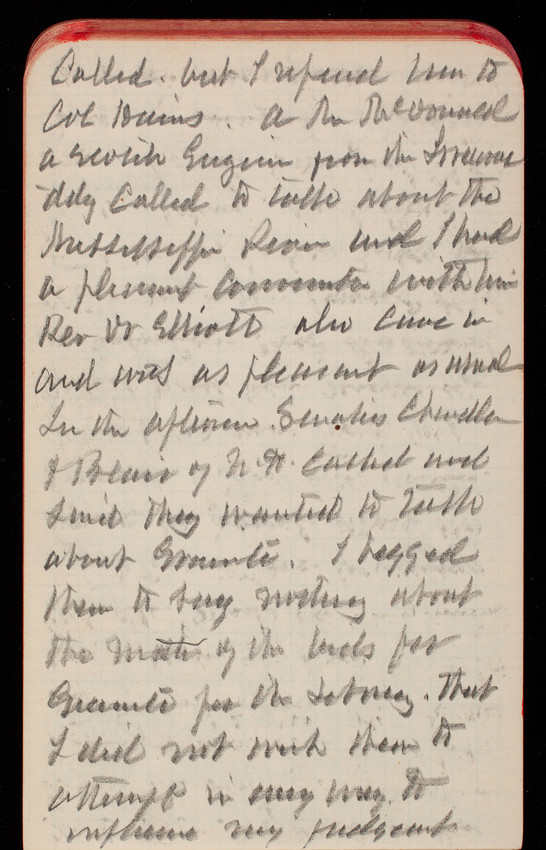 Called. but I refered him to
Col Hains. A Mr McDonald
a Scotch Engineer from the
called to talk about the
Mississippi River and I had
a pleasant conversation with him
Rev Dr Elliott also came in
and was as pleasant as usual
In the afternoon Senators Chandler
& Blair of N.H. called and
said they wanted to talk
about Granite. I begged
them to say nothing about
the matter of the bids for
Granite for the Library. That
I did not wish them to
attempt in any way to
influence my judgment